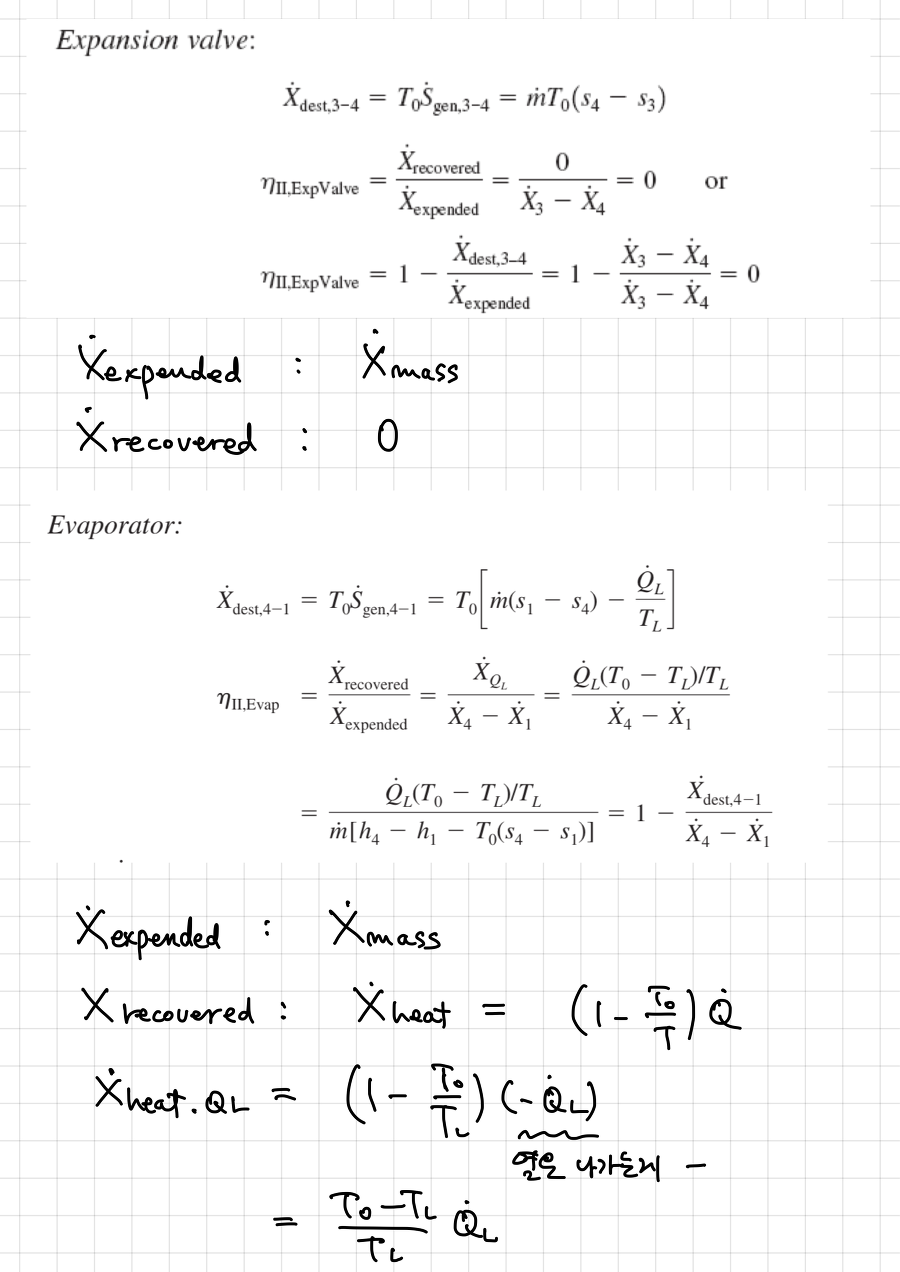 Expansion valve:
Ẋdest,3–4 = T₀Ṡgen,3–4 = ṁT₀(s₄ − s₃)
ηII,ExpValve = Ẋrecovered / Ẋexpended = 0 / (Ẋ₃ − Ẋ₄) = 0 or
ηII,ExpValve = 1 − Ẋdest,3–4 / Ẋexpended = 1 − (Ẋ₃ − Ẋ₄) / (Ẋ₃ − Ẋ₄) = 0
Ẋexpended : Ẋmass
Ẋrecovered : 0
Evaporator:
Ẋdest,4–1 = T₀Ṡgen,4–1 = T₀[ṁ(s₁ − s₄) − Q̇L / TL]
ηII,Evap = Ẋrecovered / Ẋexpended = ẊQL / (Ẋ₄ − Ẋ₁) = Q̇L(T₀ − TL)/TL / (Ẋ₄ − Ẋ₁)
= Q̇L(T₀ − TL)/TL / ṁ[h₄ − h₁ − T₀(s₄ − s₁)] = 1 − Ẋdest,4–1 / (Ẋ₄ − Ẋ₁)
Ẋexpended : Ẋmass
Xrecovered : Ẋheat = (1 − T₀/T) Q̇
Ẋheat.QL = (1 − T₀/TL) (−Q̇L)
열은 나가는게 −
= (T₀ − TL) / TL Q̇L